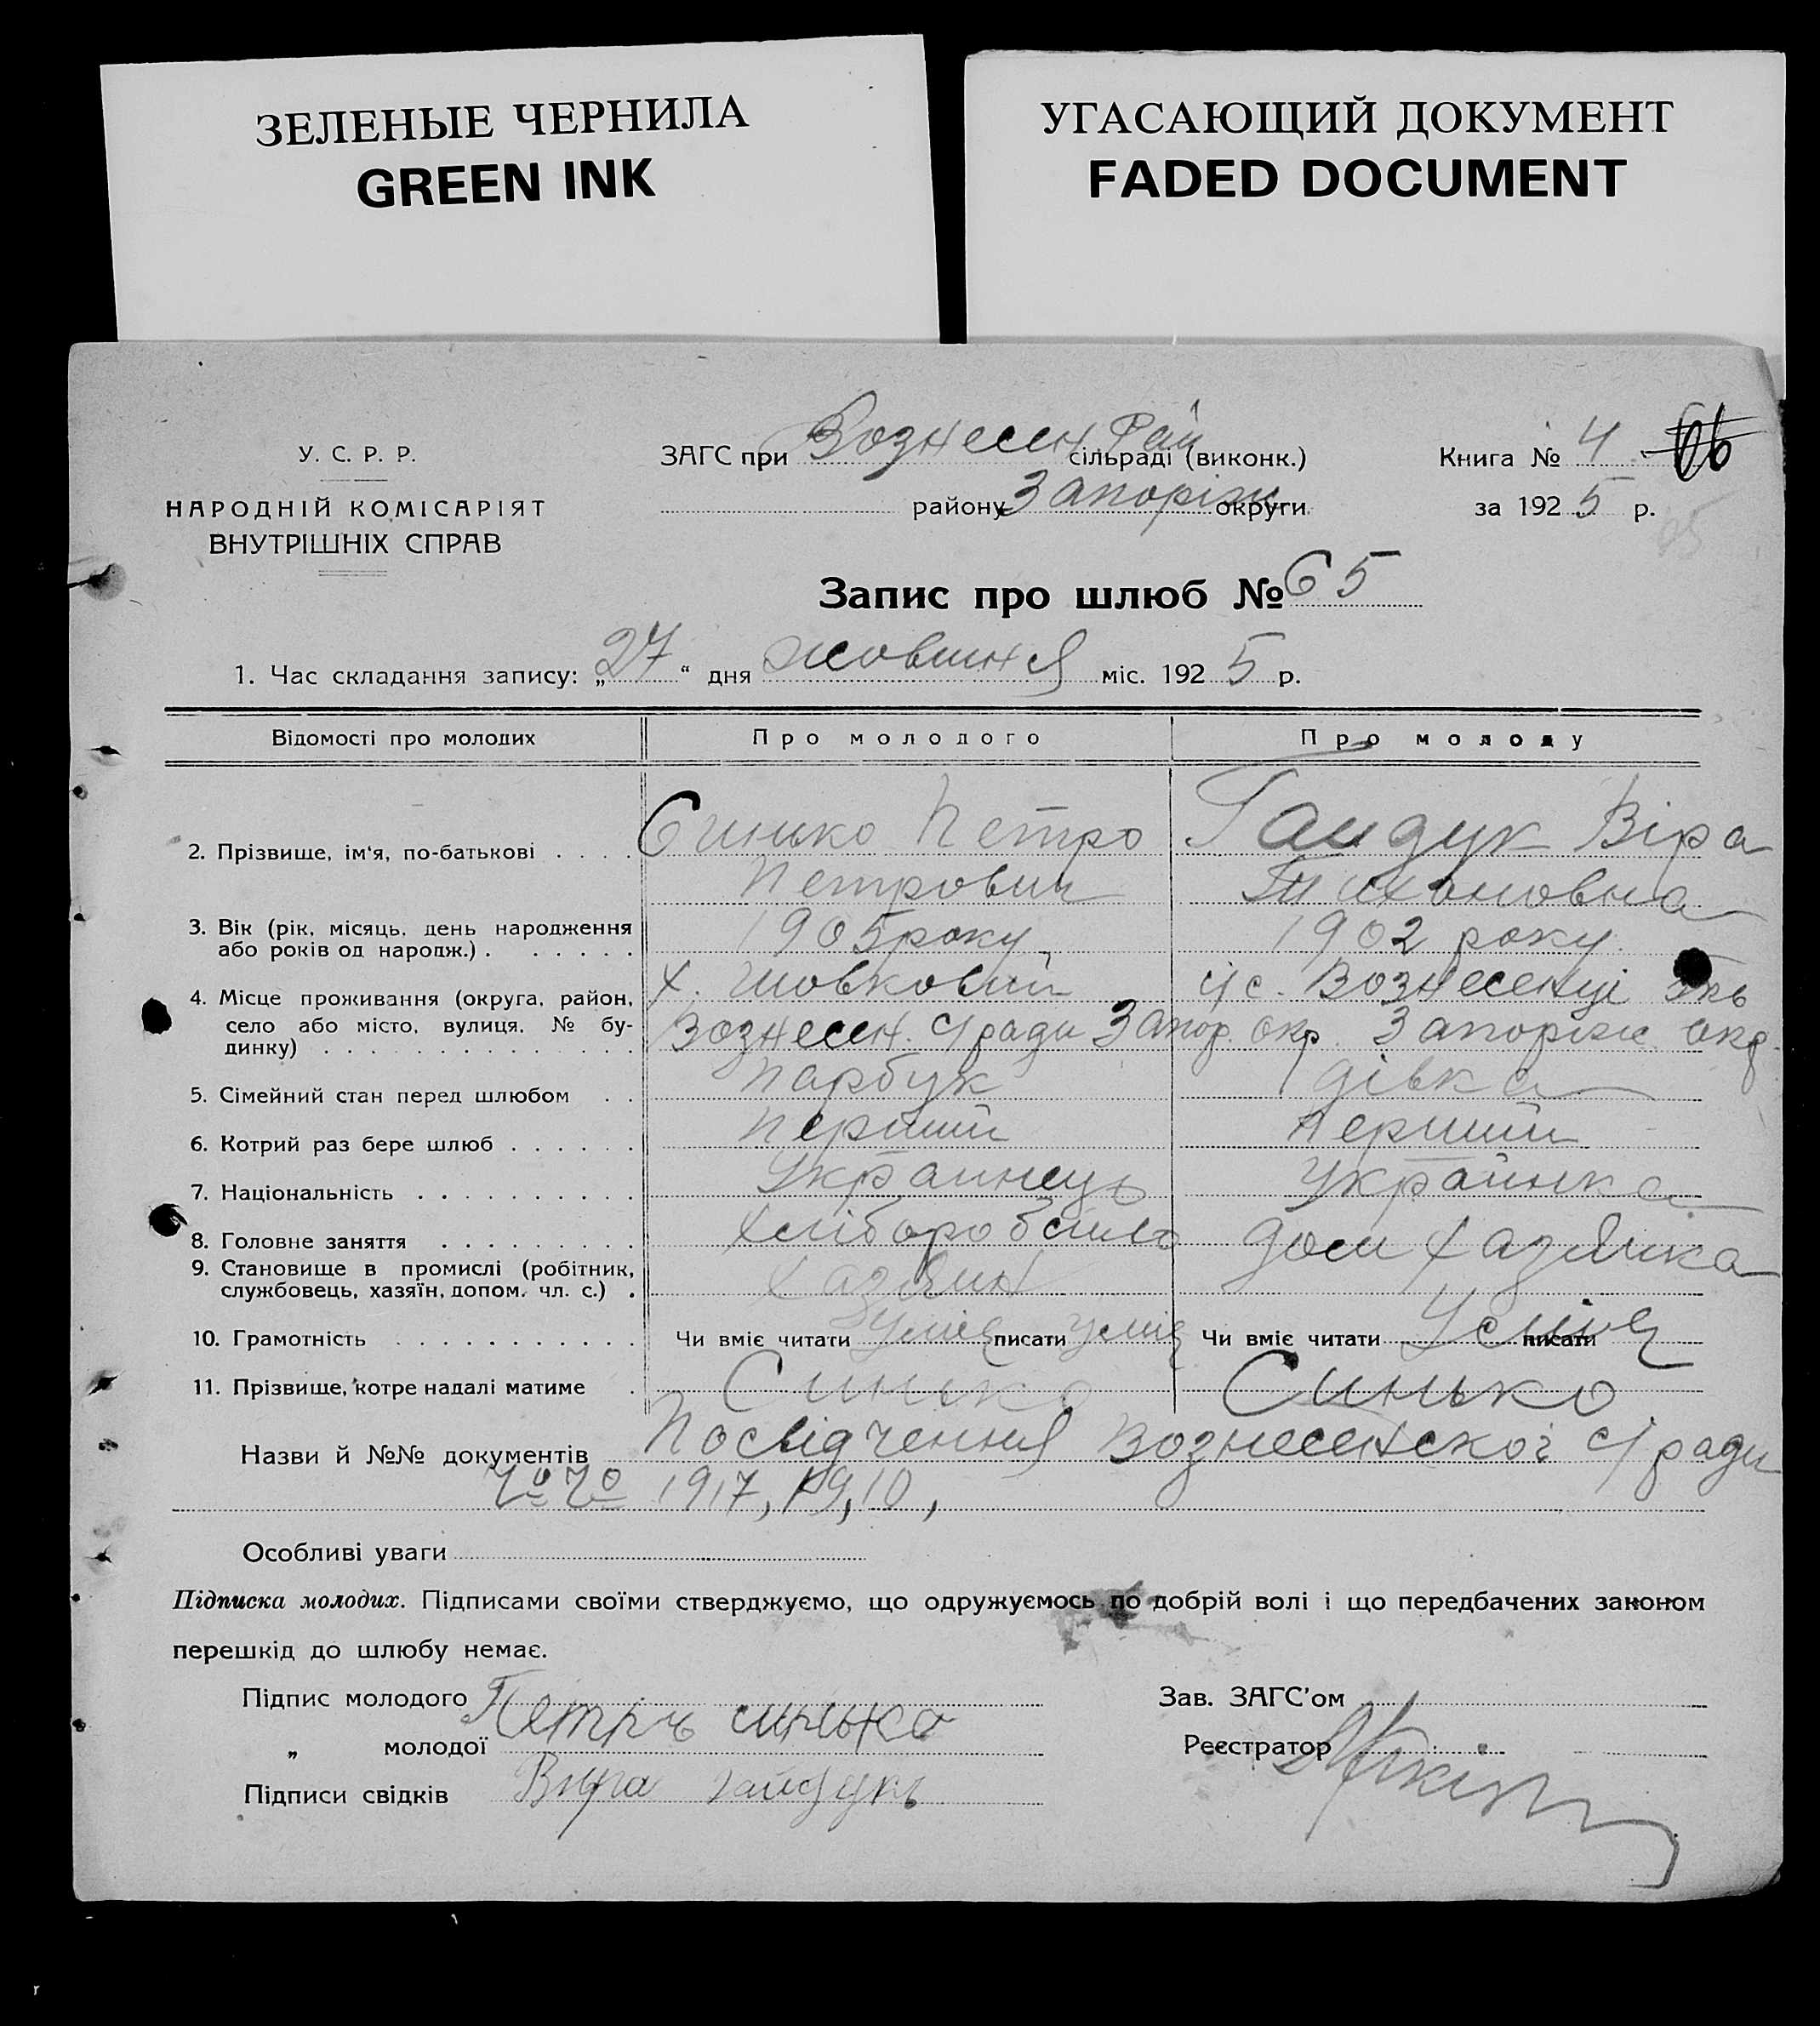 ЗЕЛЕНЫЕ ЧЕРНИЛА
GREEN INK
УГАСАЮЩИЙ ДОКУМЕНТ
FADED DOCUMENT
У. С. Р. Р.
НАРОДНІЙ КОМІСАРІЯТ
ВНУТРІШНІХ СПРАВ
ЗАГС при Вознесен Рай сільраді (виконк.)
району Запоріж округи
Книга № 4
за 1925 р.
Запис про шлюб № 65
1. Час складання запису: „27“ дня жовтня міс. 1925 р.
Відомості про молодих Про молодого Про молоду
2. Прізвище, ім'я, по-батькові . . . . Синько Петро Гайдук Віра
Петрович Тихоновна
3. Вік (рік, місяць, день народження 1905 року 1902 року
або років од народж.) . . . . . .
4. Місце проживання (округа, район, х. Шовковий с. Вознесенці
село або місто, вулиця, № бу- Вознесен. с/ради Запор. окр. Запоріж. окр.
динку) . . . . . . . . . . . . . .
5. Сімейний стан перед шлюбом . . Парубок дівка
6. Котрий раз бере шлюб . . . . . . перший перший
7. Національність . . . . . . . . . . Українець Українка
8. Головне заняття . . . . . . . . . Хліборобство дом хазяйка
9. Становище в промислі (робітник, хазяин
службовець, хазяїн, допом. чл. с.) .
10. Грамотність . . . . . . . . . . . Чи вміє читати уміє писати уміє Чи вміє читати писати
11. Прізвище, котре надалі матиме . Синько Синько
Назви й №№ документів Посвідчення Вознесенської с/ради
№№ 1917, 1910,
Особливі уваги
Підписка молодих. Підписами своїми стверджуємо, що одружуємось по добрій волі і що передбачених законом
перешкід до шлюбу немає.
Підпис молодого Петръ синько
„ молодої
Підписи свідків Вира гайдукъ
Зав. ЗАГС'ом
Реєстратор